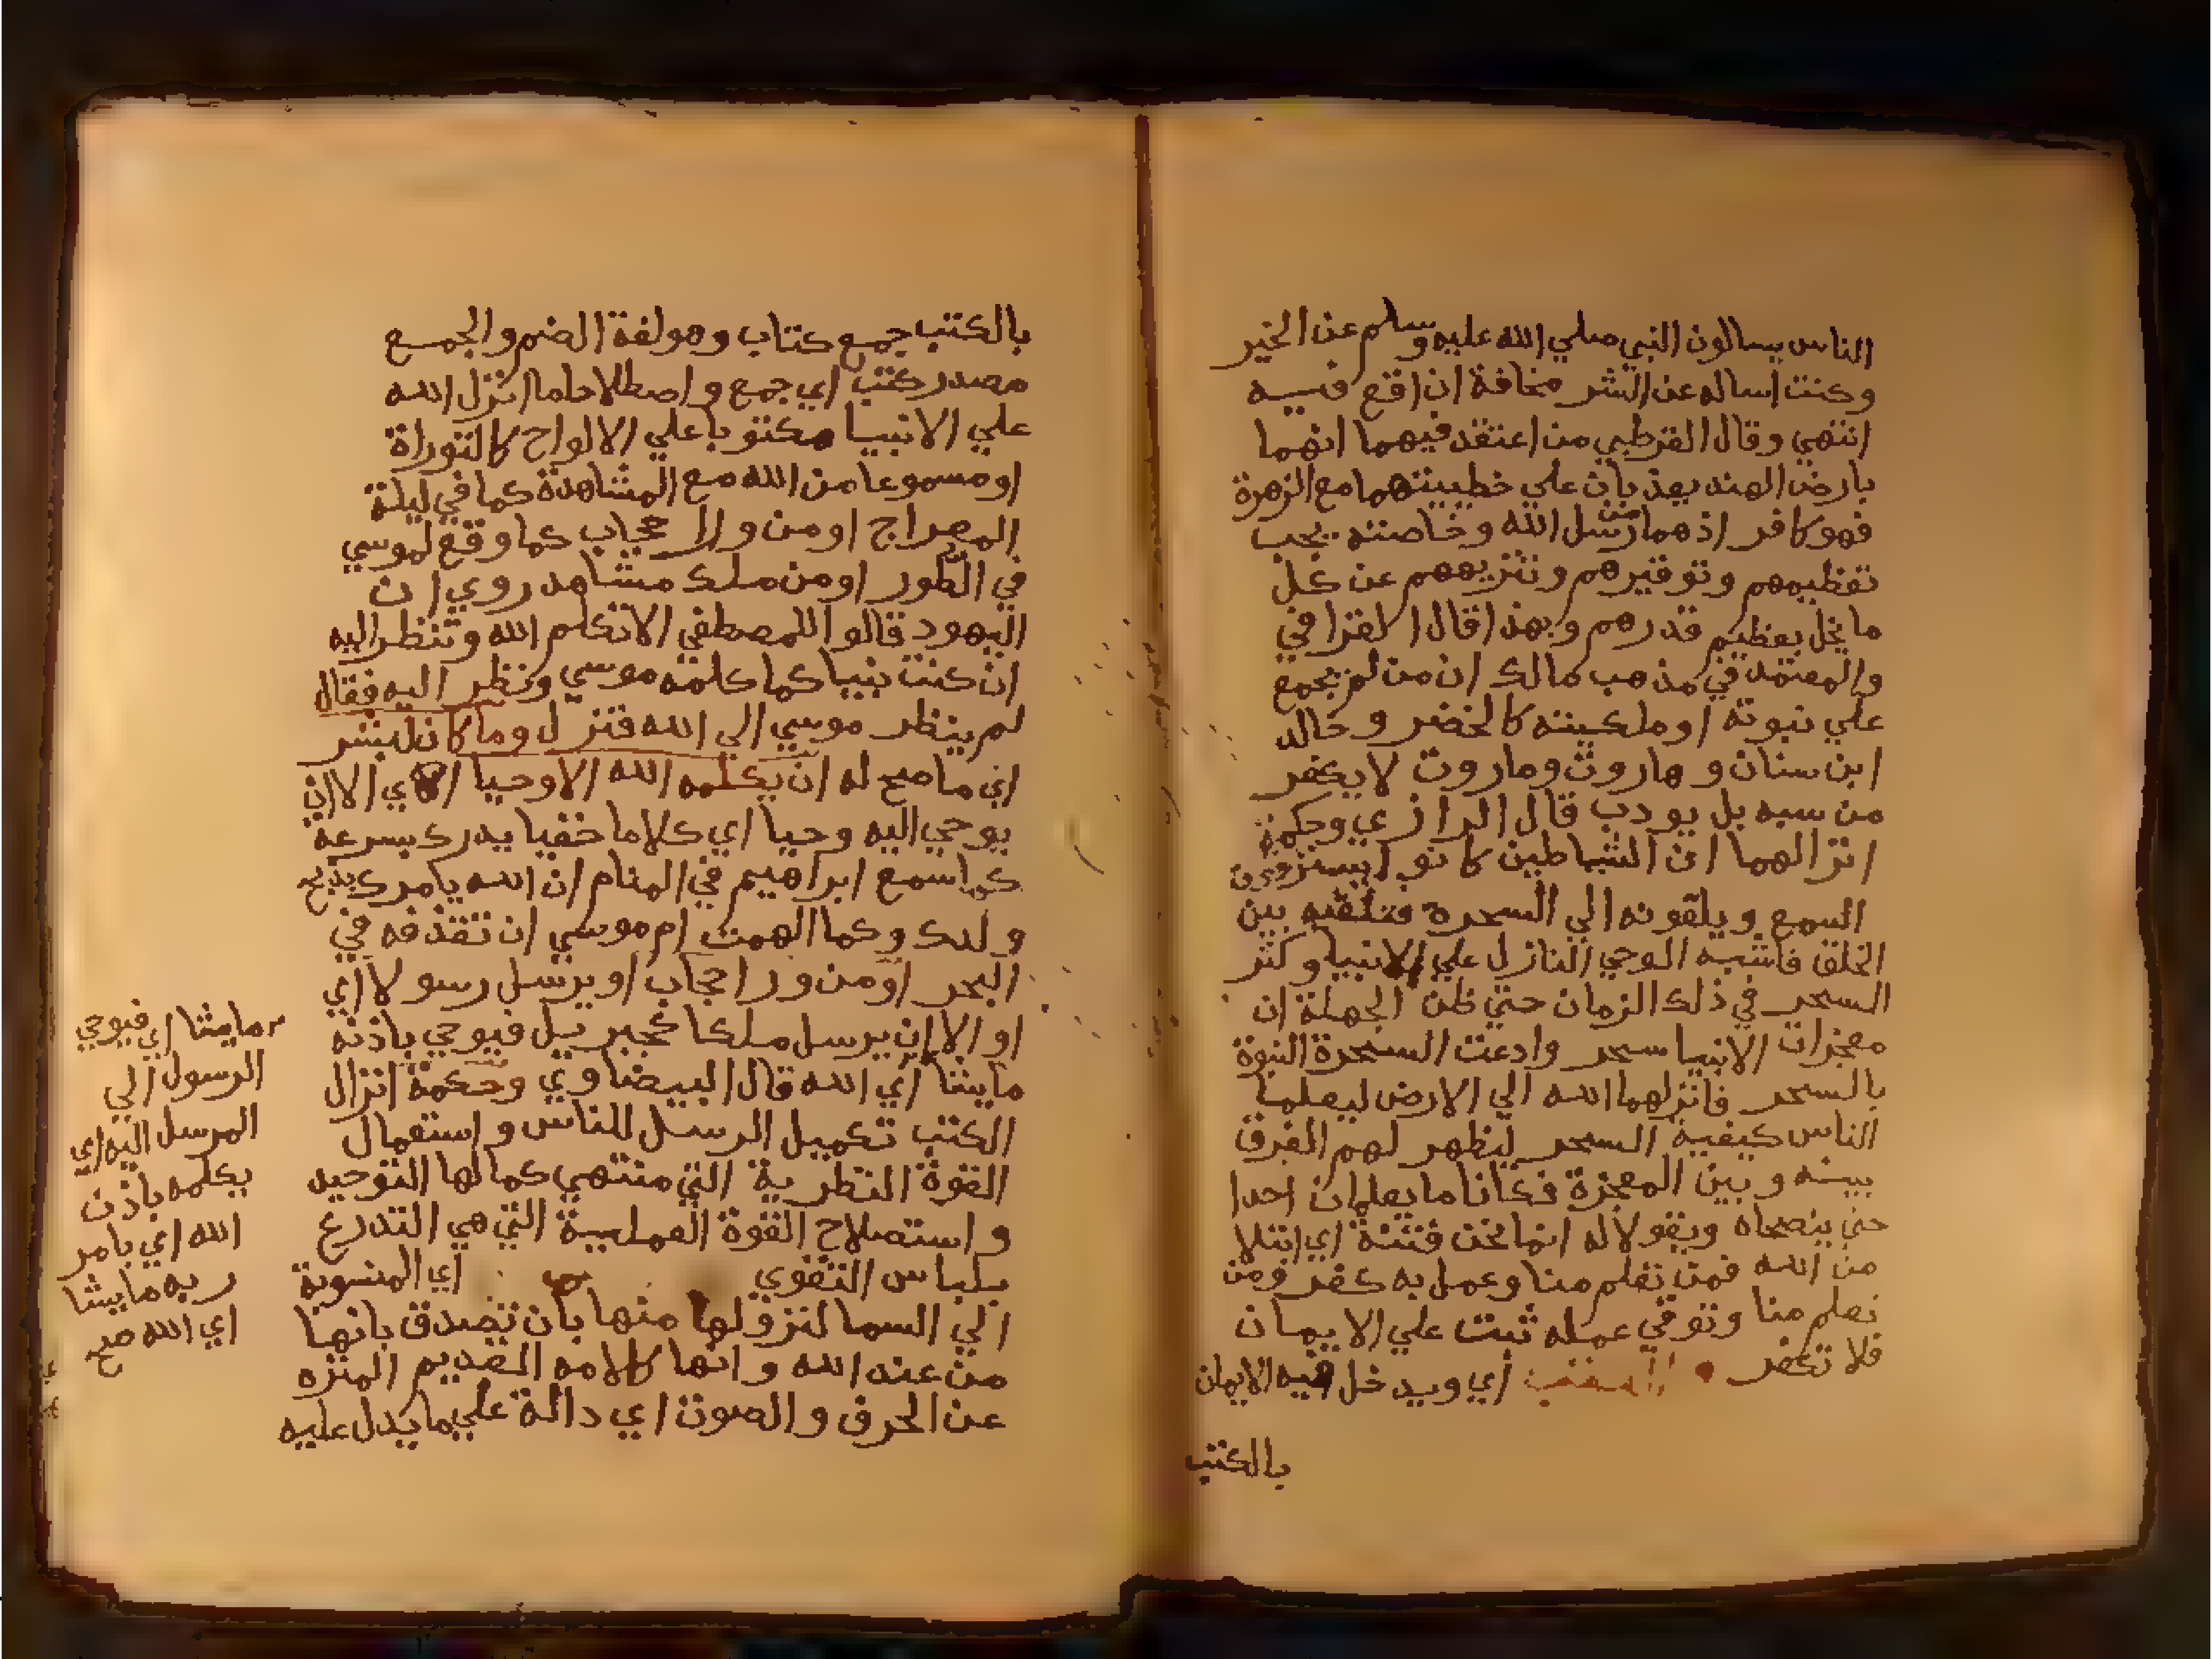 الناس يسالون النبي صلي الله عليه وسلم عن الخير
وكنت اساله عن الشر مخافة ان اقع فيه
انتهي وقال القرطبي من اعتقد فيهما انهما
بارض الهند يعذبان علي خطيتهما مع الزهرة
فهو كافر اذ هما من رسل الله وخاصته يجب
تعظيمهم وتوقيرهم وتنزيههم عن كل
ما يخل بعظيم قدرهم وبهذا قال القرافي
والمعتمد في مذهب مالك ان من لم يجمع
علي نبوته او ملكيته كالخضر وخالد
ابن سنان وهاروت وماروت لا يكفر
من سبه بل يودب قال الرازي وحكمة
انزالهما ان الشياطين كانوا يسترقون
السمع ويلقونه الي السحرة فتلقيه بين
الخلق فاشبه الوحي النازل علي الانبيا وكثر
السحر في ذلك الزمان حتي ظن الجهلة ان
معجزات الانبيا سحر وادعت السحرة النبوة
بالسحر فانزلهما الله الي الارض ليعلما
الناس كيفية السحر ليظهر لهم الفرق
بينه وبين المعجزة فكانا ما يعلمان احدا
حتي ينصحاه ويقولا له انما نحن فتنة اي ابتلا
من الله فمن تعلم منا وعمل به كفر ومن
تعلم منا وتوقي عمله ثبت علي الايمان
فلا تكفر اي ويدخل فيه الايمان
بالكتب
بالكتب جمع كتاب وهو لغة الضم والجمع
مصدر كتب اي جمع واصطلاحا ما انزل الله
علي الانبيا مكتوبا علي الالواح كالتوراة
او مسموعا من الله مع المشاهدة كما في ليلة
المعراج او من ورا حجاب كما وقع لموسي
في الطور او من ملك مشاهد روي ان
اليهود قالوا للمصطفي الا تكلم الله وتنظر اليه
ان كنت نبيا كما كلمه موسي ونظر اليه فقال
لم ينظر موسي الي الله فنزل وما كان لبشر
اي ما صح له ان يكلمه الله الا وحيا اي الا ان
يوحي اليه وحيا اي كلاما خفيا يدرك بسرعة
كما سمع ابراهيم في المنام ان الله يامرك بذبح
ولدك وكما الهمت ام موسي ان تقذفه في
البحر او من ورا حجاب او يرسل رسولا اي
او الا ان يرسل ملكا كجبريل فيوحي باذنه
ما يشا اي الله قال البيضاوي وحكمة انزال
الكتب تكميل الرسل للناس واستعمال
القوة النظرية التي منتهي كمالها التوحيد
واستصلاح القوة العملية التي هي التدرع
بلباس التقوي اي المنسوبة
الي السما لنزولها منها بان تصدق بانها
من عند الله وانها كلامه القديم المنزه
عن الحرف والصوت اي دالة علي ما يدل عليه
ما يشا اي فيوحي
الرسول الي
المرسل اليه اي
يكلمه باذن
الله اي بامر
ربه ما يشا
اي الله صح